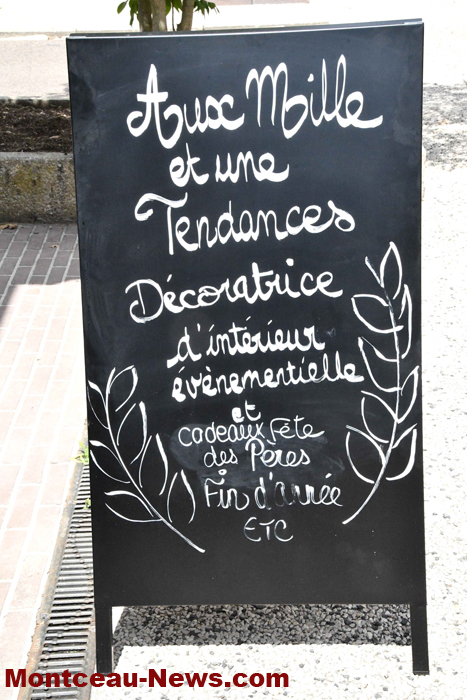 Aux Mille
et une
Tendances
Décoratrice
d'intérieur
évènementielle
et
cadeaux fête
des Pères
Fin d'année
ETC
Montceau-News.com